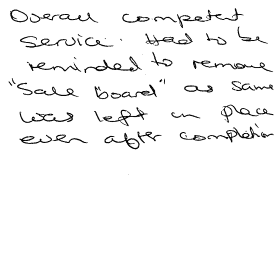 Overall competent
service. Had to be
reminded to remove
"Sale board" as same
was left in place
even after completion